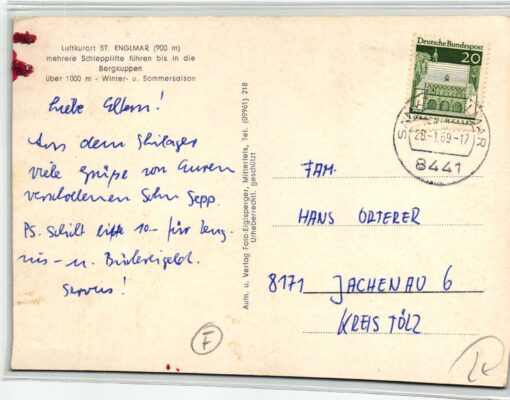 Luftkurort ST. ENGLMAR (900 m)
mehrere Schlepplifte führen bis in die
Bergkuppen
über 1000 m - Winter- u. Sommersaison
Liebe Eltern!
Aus dem Skilager
viele Grüße von Eurem
verschollenen Sohn Sepp.
PS. Schickt bitte 10.- für Zeug-
nis- u. Büchereigeld.
Servus!
Aufn. u. Verlag Foto-Eiglsperger, Mitterfels, Tel. (09961) 218
Urheberrechtl. geschützt!
Deutsche Bundespost
20
28.-1.69-17
8441
FAM.
HANS ORTERER
8171 JACHENAU 6
KREIS TÖLZ
F